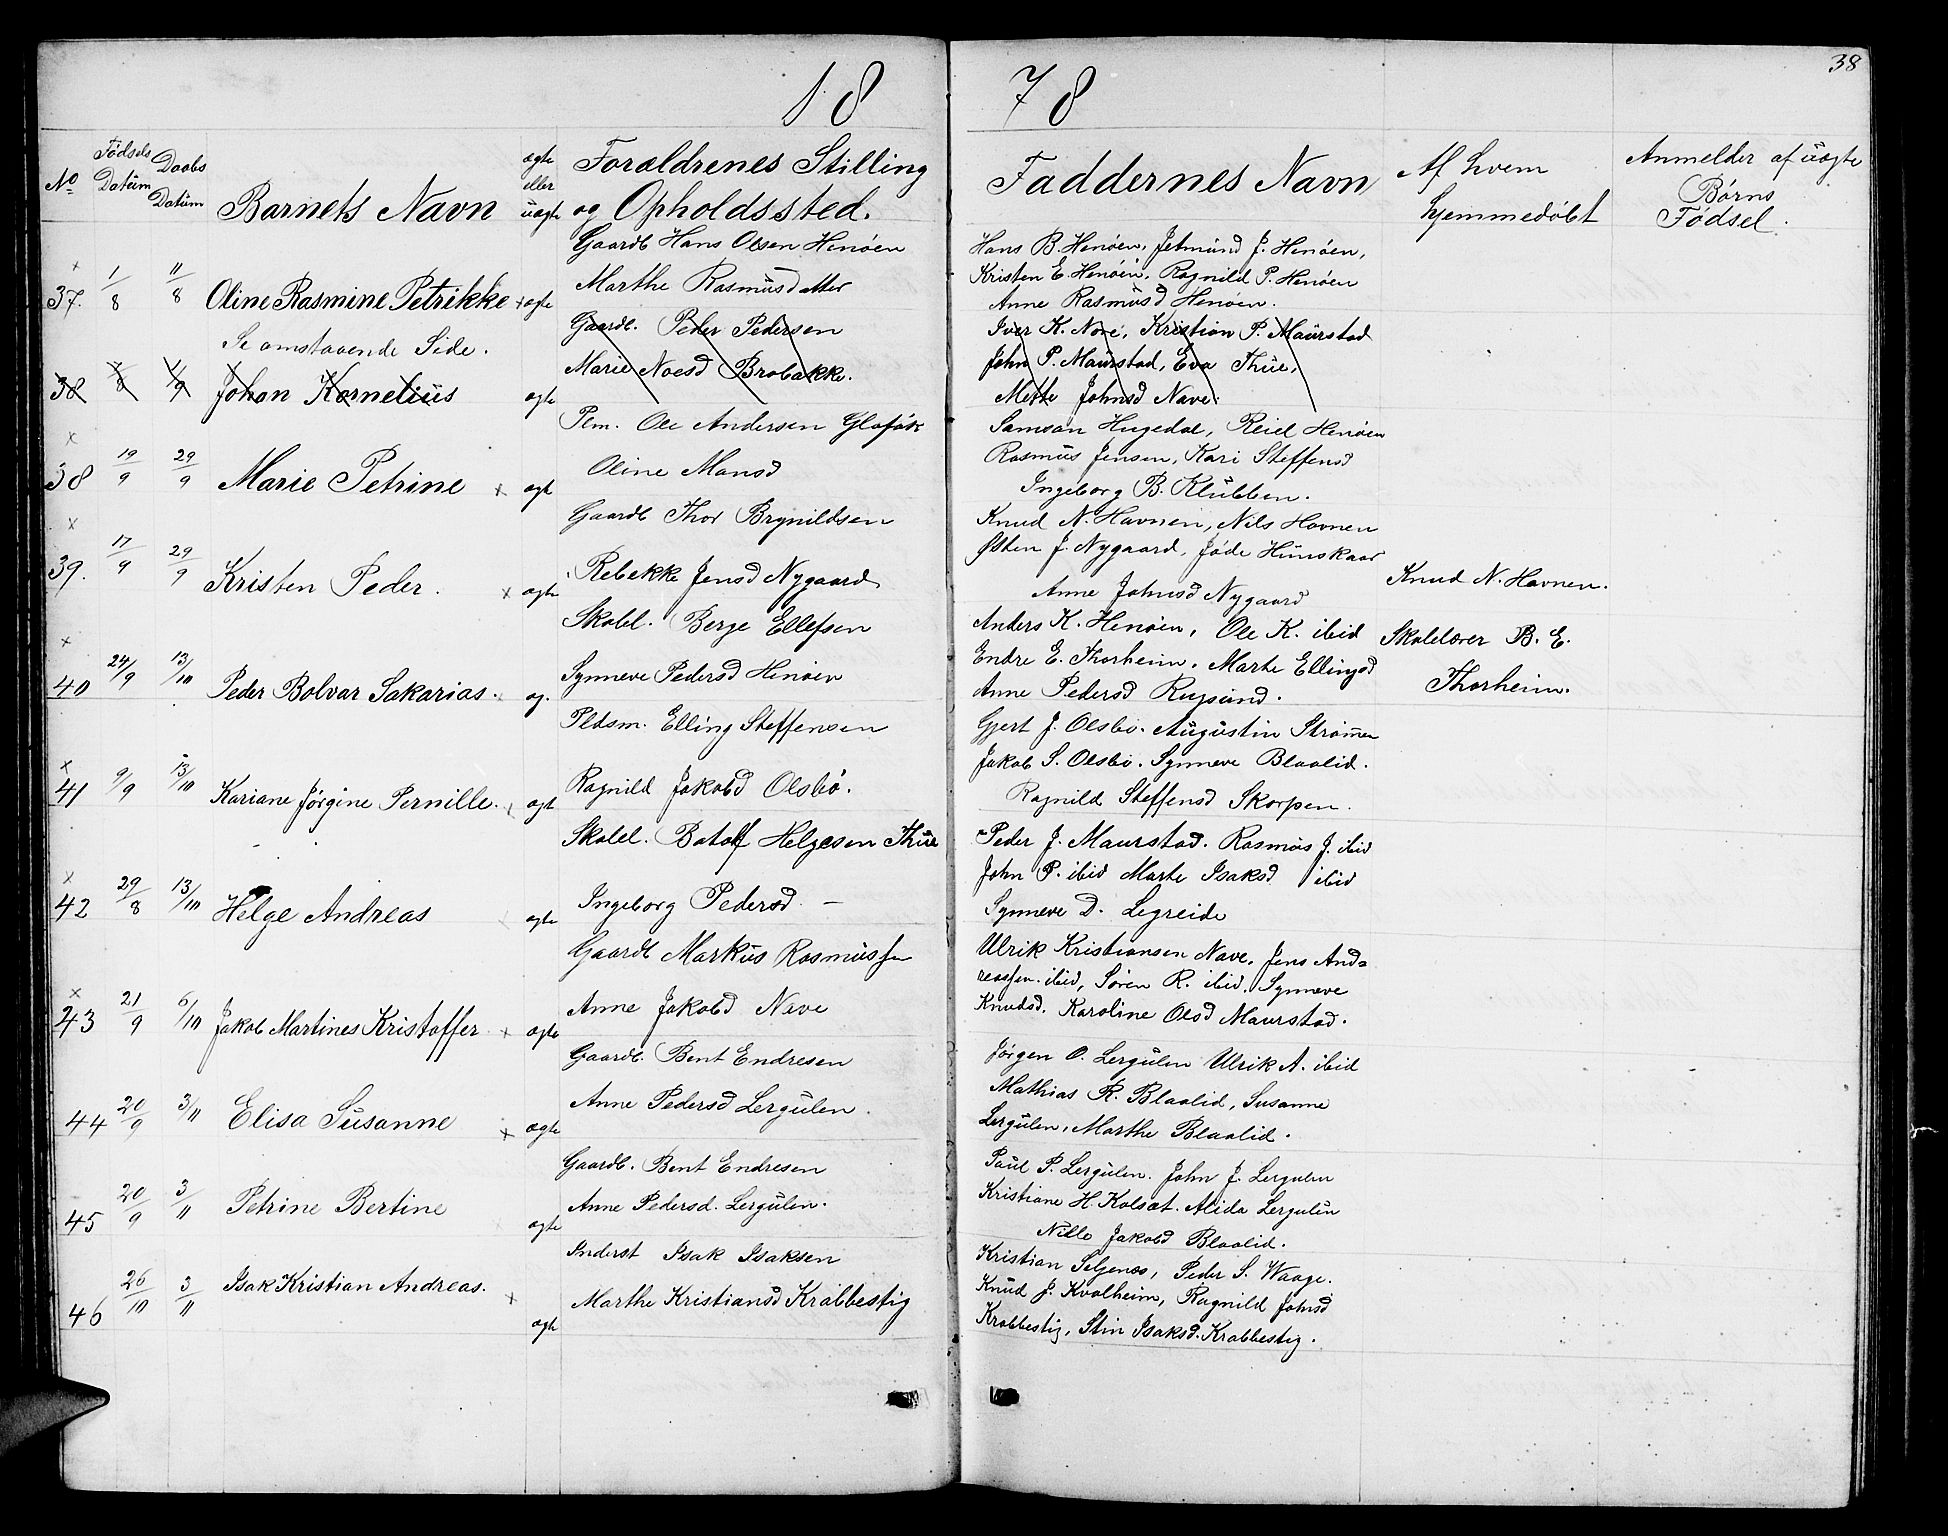 1878
38
No
Fødsels Datum
Daabs Datum
Barnets Navn
ægte eller uægte
Forældrenes Stilling og Opholdssted.
Faddernes Navn
Af hvem hjemmedøbt
Anmelder af uægte Børns Fødsel.
37. 1/8 11/8 Oline Rasmine Petrikke ægte
Gaardb Hans Olsen Henøen
Marthe Rasmusdatter
Hans B. Henøen, Jetmund J. Henøen,
Kristen E. Henøen, Ragnild P. Henøen
Anne Rasmusd Henøen.
Se omstaaende Side.
38 7/8 1/9 Johan Kornelius ægte
Gaardb. Peder Pedersen
Marie Noesd Brobakke.
Iver K. Nore, Kristian P. Maurstad
John P. Maurstad, Eva Thue,
Mette Johnsd Nave.
38 19/9 29/9 Marie Petrine ægte
Plm. Ole Andersen
Oline Mansd
Samson Hugedal, Reiel Henøen
Rasmus Jensen, Kari Steffensd
Ingeborg B. Klubben.
39. 17/9 29/9 Kristen Peder. ægte
Gaardb Thor Brynildsen
Rebekke Jensd Nygaard
Knud N. Havnen, Nils Havnen
Østen J. Nygaard, Jøde Hunskaar
Anne Johnsd Nygaard
Knud N. Havnen.
40 24/9 13/10 Peder Bolvar Sakarias. æg.
Skolel. Berge Ellefsen
Synneve Pedersd Henøen
Anders K. Henøen, Ole K. ibid
Endre E. Thorheim. Marte Ellingsd
Anne Pedersd Rugsund.
Skolelærer B. E.
Thorheim.
41 9/9 13/10 Kariane Jørgine Pernille. ægt
Pldsm. Elling Steffensen
Ragnild Jakobd Olsbø.
Gjert J. Olsbø. Augustin Strømen
Jakob S. Olsbø. Synneve Blaalid.
Ragnild Steffensd Skorpen.
42 29/8 13/10 Helge Andreas ægte
Skolel. Botolf Helgesen Thue
Ingeborg Pedersd. —
Peder J. Maurstad. Rasmus J. ibid
John P. ibid Marte Isaksd ibid
Synneve D. Legreide
43 21/9 6/10 Jakob Martines Kristoffer ægte
Gaardb Markus Rasmussen
Anne Jakobd Nave
Ulrik Kristiansen Nave, Jens And=
reassen ibid, Søren R. ibid. Synneve
Knudsd. Karoline Olsd Maurstad.
44 20/9 3/11 Elisa Susanne ægte
Gaardb. Bent Endresen
Anne Pedersd Lergulen.
Jørgen O. Lergulen Ulrik A. ibid
Mathias R. Blaalid, Susanne
Lergulen, Marthe Blaalid.
45 20/9 3/11 Petrine Bertine ægte
Gaardb. Bent Endresen
Anne Pedersd. Lergulen.
Paul P. Lergulen. John J. Lergulen
Kristiane H. Kolset. Alida Lergulen
Nille Jakobd Blaalid.
46 26/10 3/11 Isak Kristian Andreas. ægte
Inderst Isak Isaksen
Marthe Kristiansd Krabbestig
Kristian Seljenes, Peder S. Waage.
Knud J. Kvalheim, Ragnild Johnsd
Krabbestig, Stin Isaksd. Krabbestig.